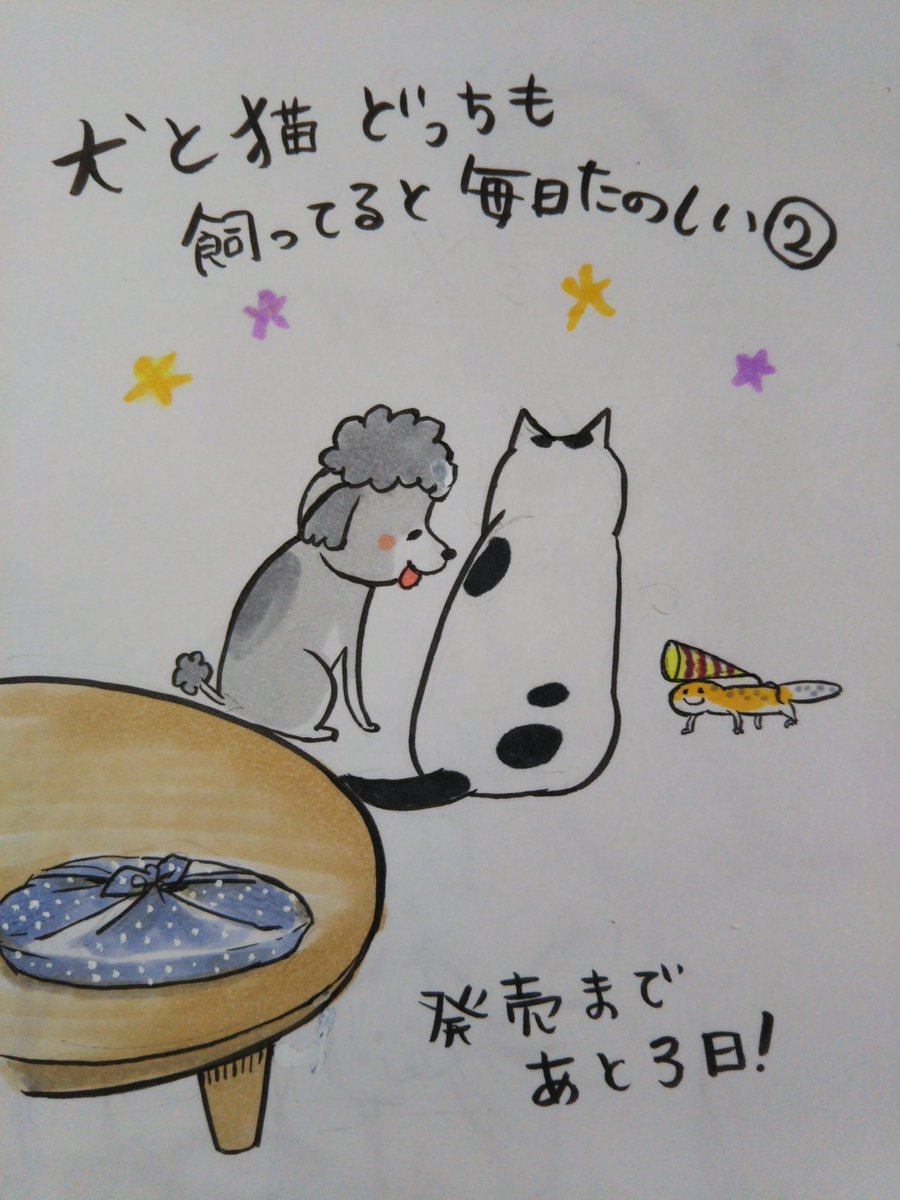 犬と猫 どっちも
飼ってると 毎日たのしい②
発売まで
あと3日!